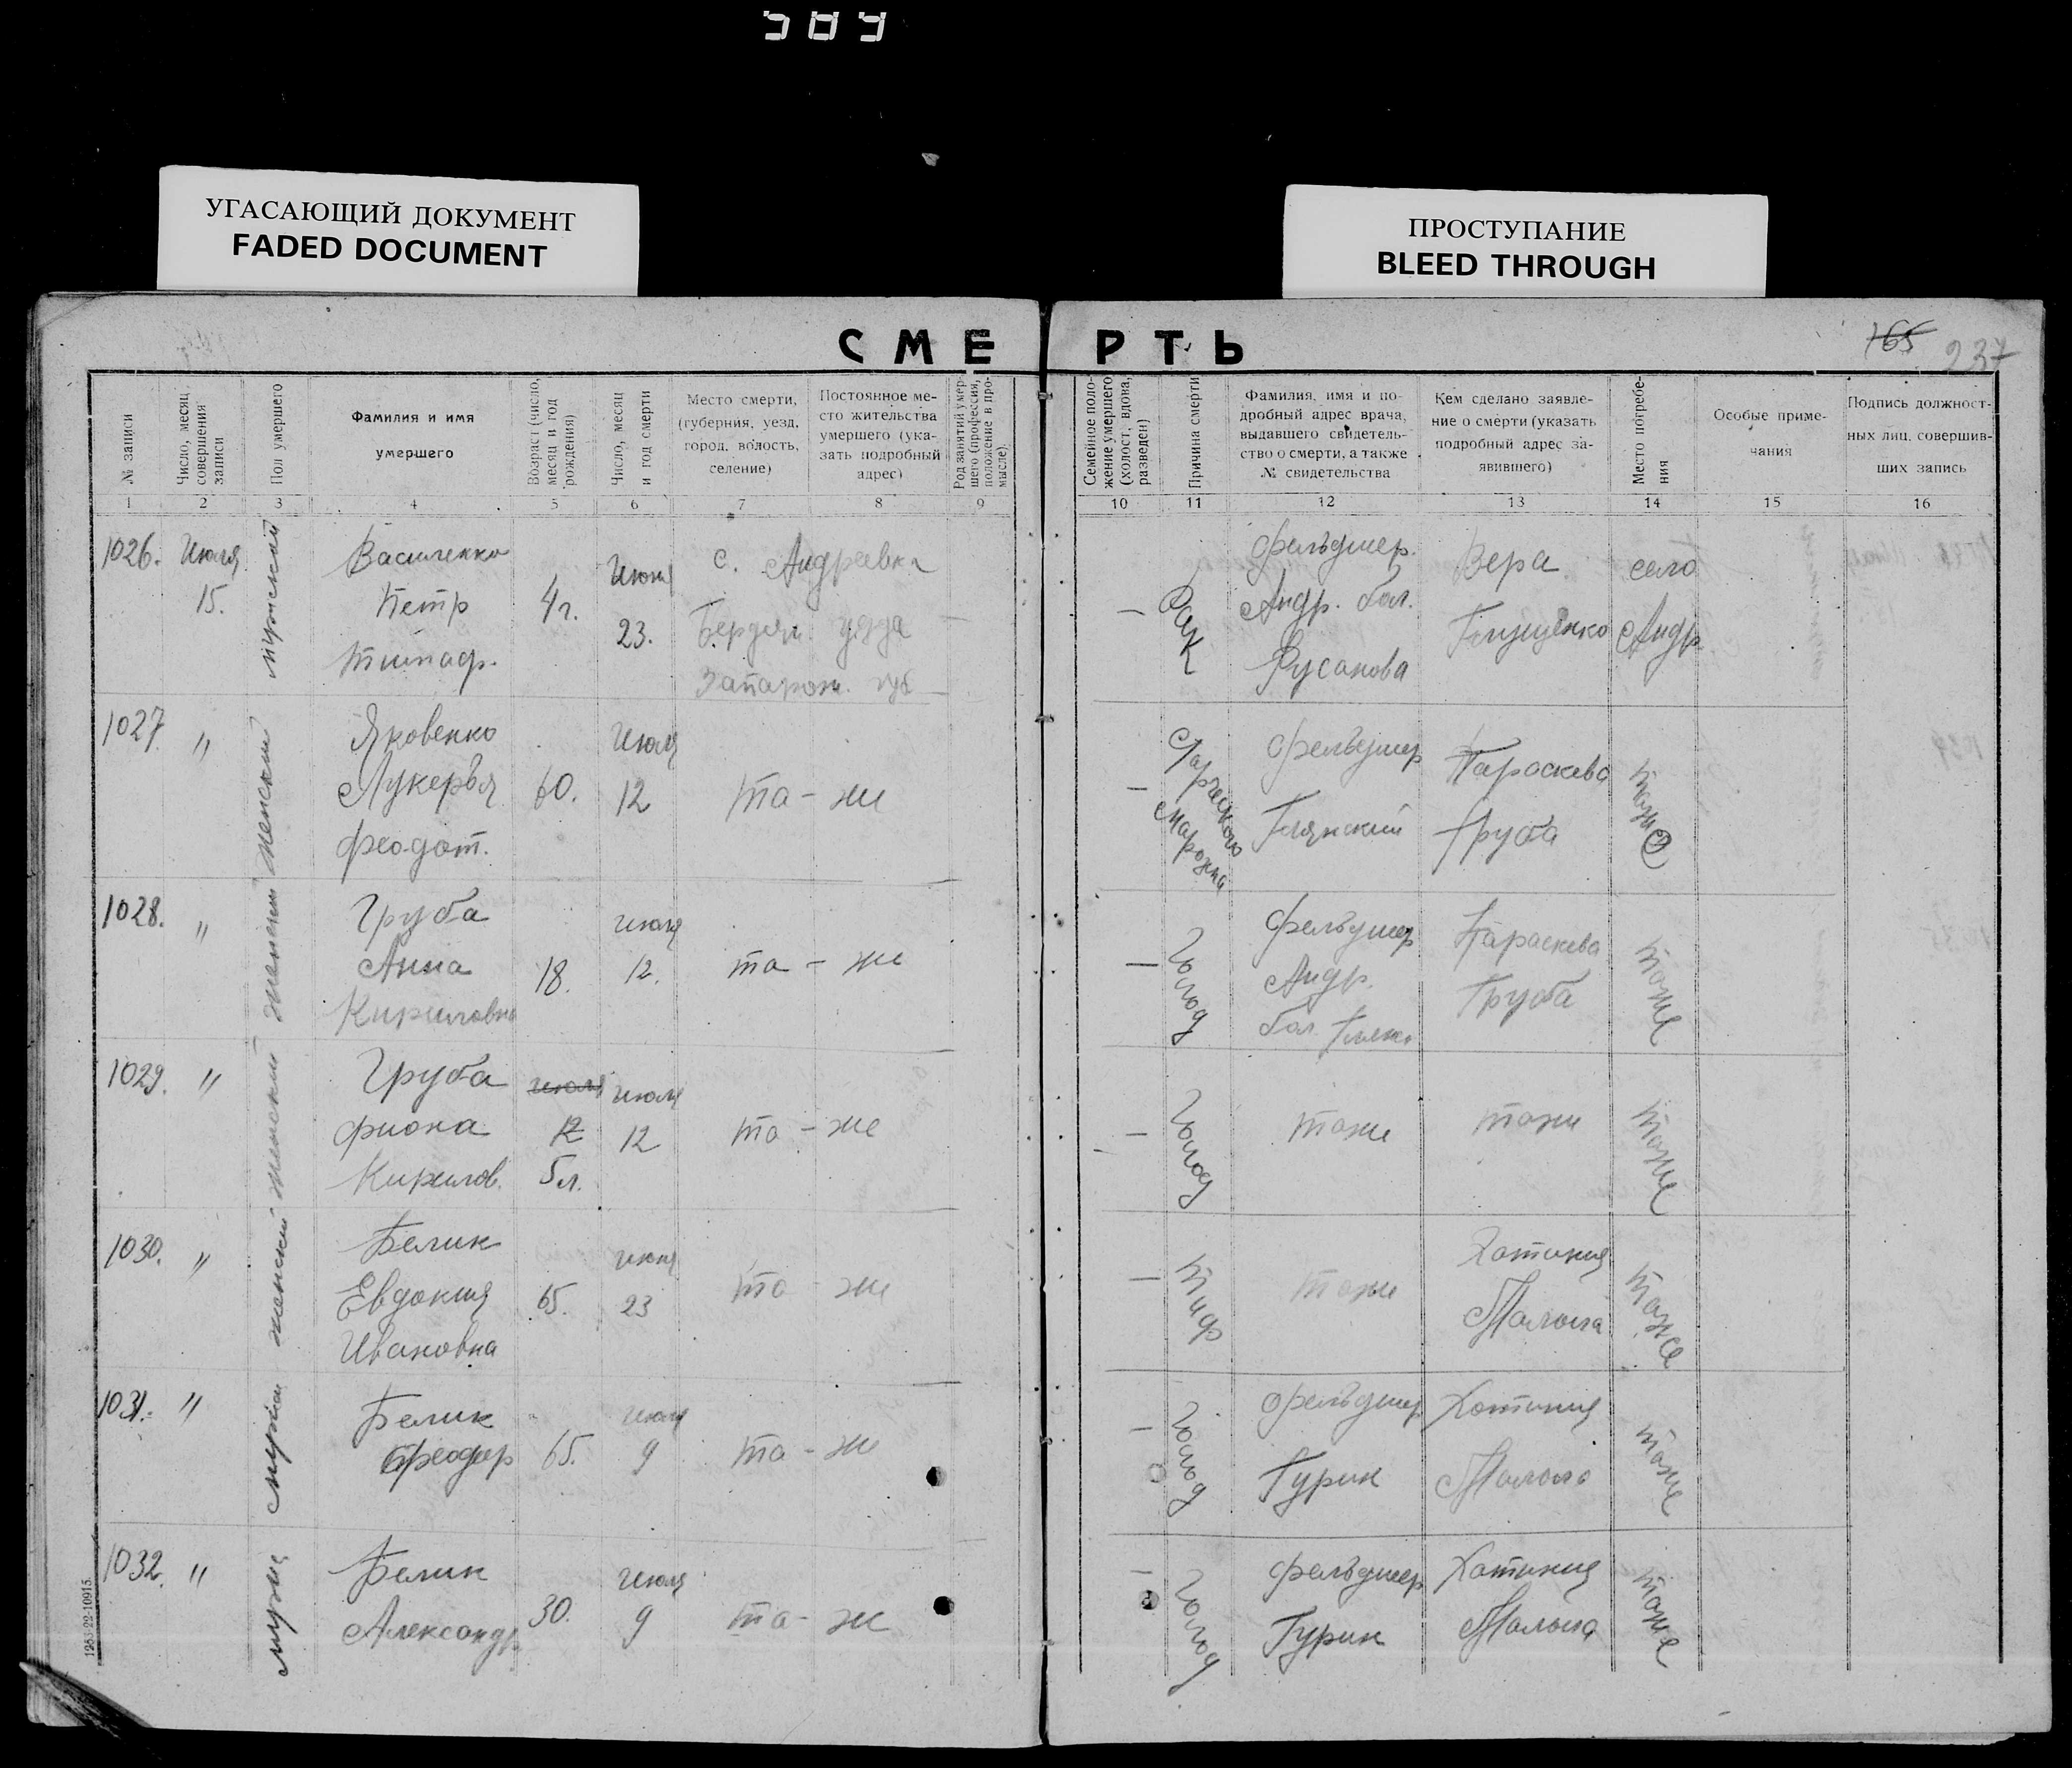 509
УГАСАЮЩИЙ ДОКУМЕНТ
FADED DOCUMENT
ПРОСТУПАНИЕ
BLEED THROUGH
СМЕРТЬ
165 237
№ записи
Число, месяц совершения записи
Пол умершего
Фамилия и имя умершего
Возраст (число, месяц и год рождения)
Число, месяц и год смерти
Место смерти, (губерния, уезд, город, волость, селение)
Постоянное место жительства умершего (указать подробный адрес)
Род занятий умершего (профессия, положение в промысле).
Семейное положение умершего (холост, вдова, разведен)
Причина смерти
Фамилия, имя и подробный адрес врача, выдавшего свидетельство о смерти, а также № свидетельства
Кем сделано заявление о смерти (указать подробный адрес заявившего)
Место погребения
Особые примечания
Подпись должностных лиц, совершивших запись
1 2 3 4 5 6 7 8 9 10 11 12 13 14 15 16
1026. Июля 15. мужской
Василенко
Петр
Тимаф.
4 г.
Июня 23.
с. Андреевка
Бердян. уезда
Запарож. губ
— Рак
Фельдшер.
Андр. бол.
Русанова
Вера
село
Андр
1027 " женский
Яковенко
Лукерья
Феодот.
60.
Июля 12
та - же
—
Фельдшер
Параскева
Груба
тоже
1028. " женский
Груба
Анна
Кириловна
18.
июля 12.
та - же
— Голод
Фельдшер
Андр.
бол.
Параскева
Груба
тоже
1029. " женский
Груба
Фиона
Кирилов.
июля
12
5 л.
июля 12
та - же
— Голод
тоже
тоже
тоже
1030. " женский
Белик
Евдокия
Ивановна
65.
июня 23
та - же
— Тиф
тоже
Хотиния
тоже
1031. " мужск
Белик
Феодор
65.
июля 9
та - же
— Голод
Фельдшер
Гурин
Хотиния
тоже
1032. "
Белик
Александр.
30.
Июля 9
та - же
— Голод
Фельдшер
Гурин
Хотиния
тоже